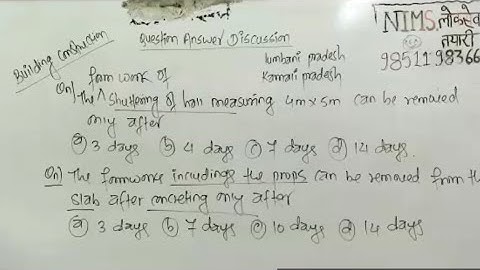 Building Construction
Question Answer Discussion
lumbani pradesh
Karnari pradesh
NIMS लोकसेवा
तयारी
9851198366
form work of
Qn) The ^ shuttering of hall measuring 4m x 5m can be removed
only after
(a) 3 days (b) 4 days (c) 7 days (d) 14 days.
Qn) The formworks includings the props can be removed from the
slab after concreting only after
(a) 3 days (b) 7 days (c) 10 days (d) 14 days